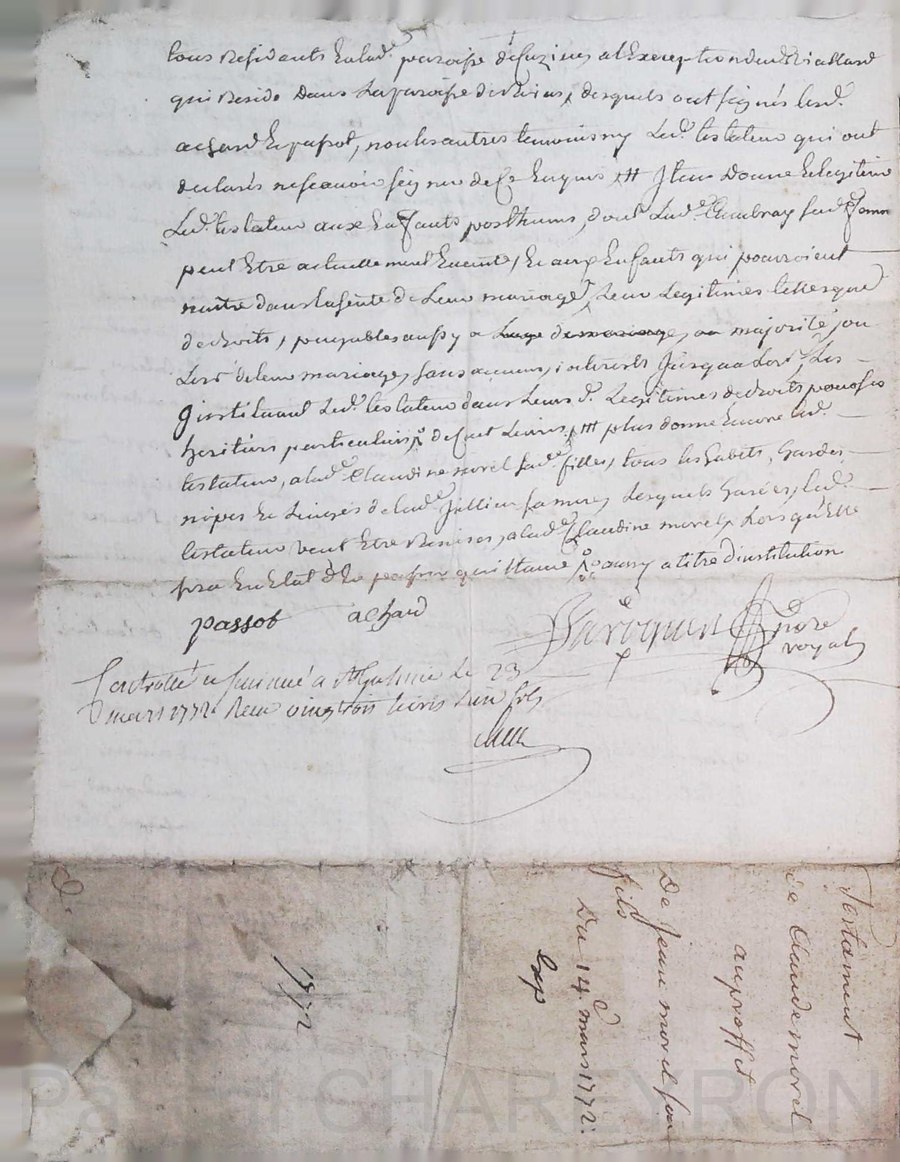 tous Residants En lad.e paroisse d'usines a l'Exception dud. Viallard
qui Reside Dans La paroisse de Rivas, desquels ont signés lesd.
achard Et passot, non les autres temoins ny Led. testateur qui ont
declarés ne scavoir signer de ce Enquis /// Item Donne Et legitime
Led. testateur aux Enfants posthums, dont Lad.e Chambray sad.e femme
peut Etre actuellement Enceinte, Et aux Enfants qui pourroient
naitre dans la suite de Leur mariage, Leur Legitimes telles que
de droits, payables aussy a Leur majorité, ou
Lors de leur mariage, sans aucuns interests Jusqu'a Lors, Les
instituant Led. testateur dans Leursd. Legitimes de droits pour ses
heritiers particuliers, /// plus donne Encore led.
testateur, a lad.e Claudine morel sad.e fille, tous les habits, hardes
nipes Et Linges de lad.e femme, Lesquels hardes, led.
testateur veut Etre Remises, a lad.e Claudine morel, Lorsqu'Elle
sera En Etat d'En passer quittance aussy a titre d'institution
passot achard
nore
royal
Controllé a St Galmier le 23
mars 1772. Reçu vingt trois livres un sol
1772
Testament
de Claude morel
au proffit
De Jean morel son
fils
Du 14.e mars 1772.
Exp
Pascal CHAREYRON